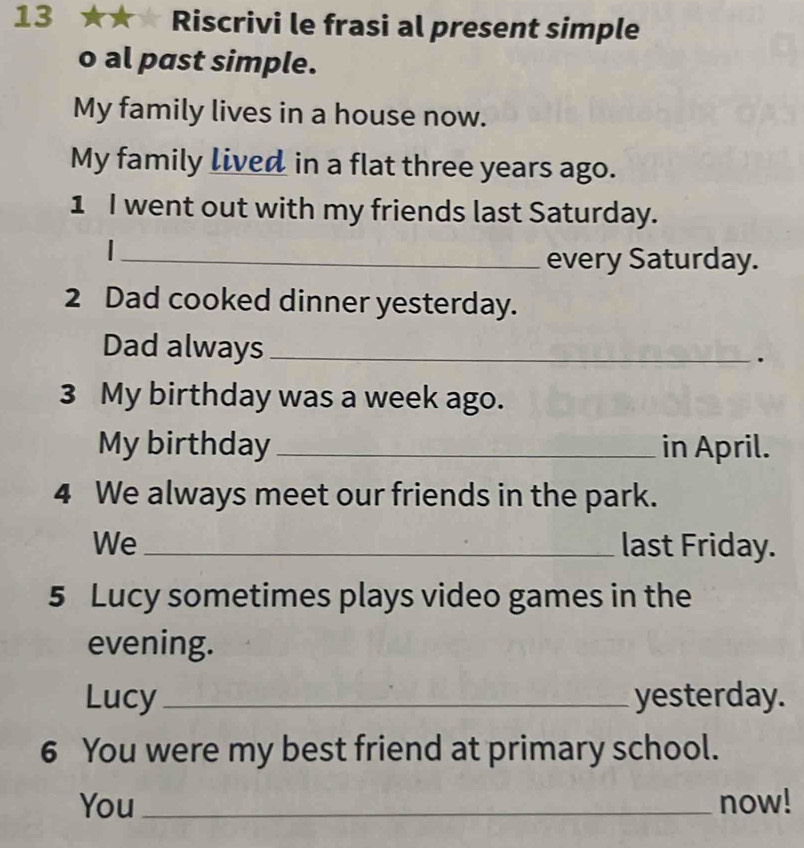 13 ★★★ Riscrivi le frasi al present simple
o al past simple.
My family lives in a house now.
My family lived in a flat three years ago.
1 I went out with my friends last Saturday.
I ______ every Saturday.
2 Dad cooked dinner yesterday.
Dad always ______.
3 My birthday was a week ago.
My birthday ______ in April.
4 We always meet our friends in the park.
We ______ last Friday.
5 Lucy sometimes plays video games in the
evening.
Lucy ______ yesterday.
6 You were my best friend at primary school.
You ______ now!